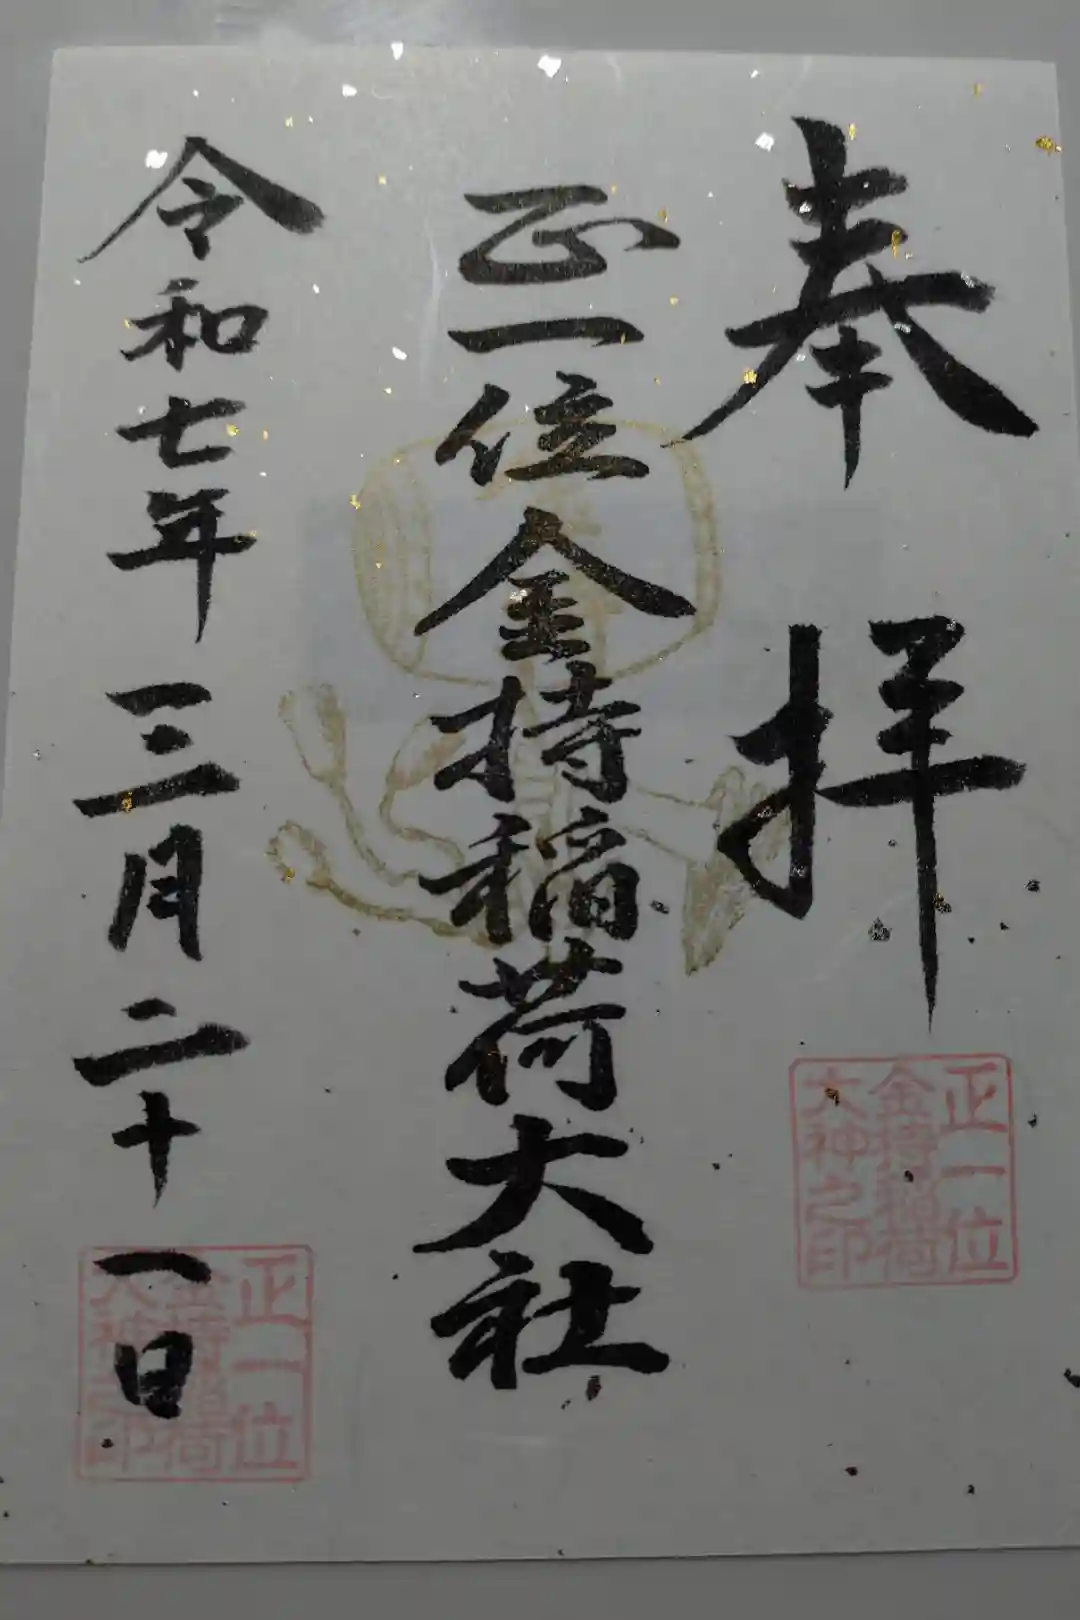 奉拝
正一位金持稲荷大社
令和七年三月二十一日
正一位
金持稲荷
大神之印
正一位
金持稲荷
大神之印